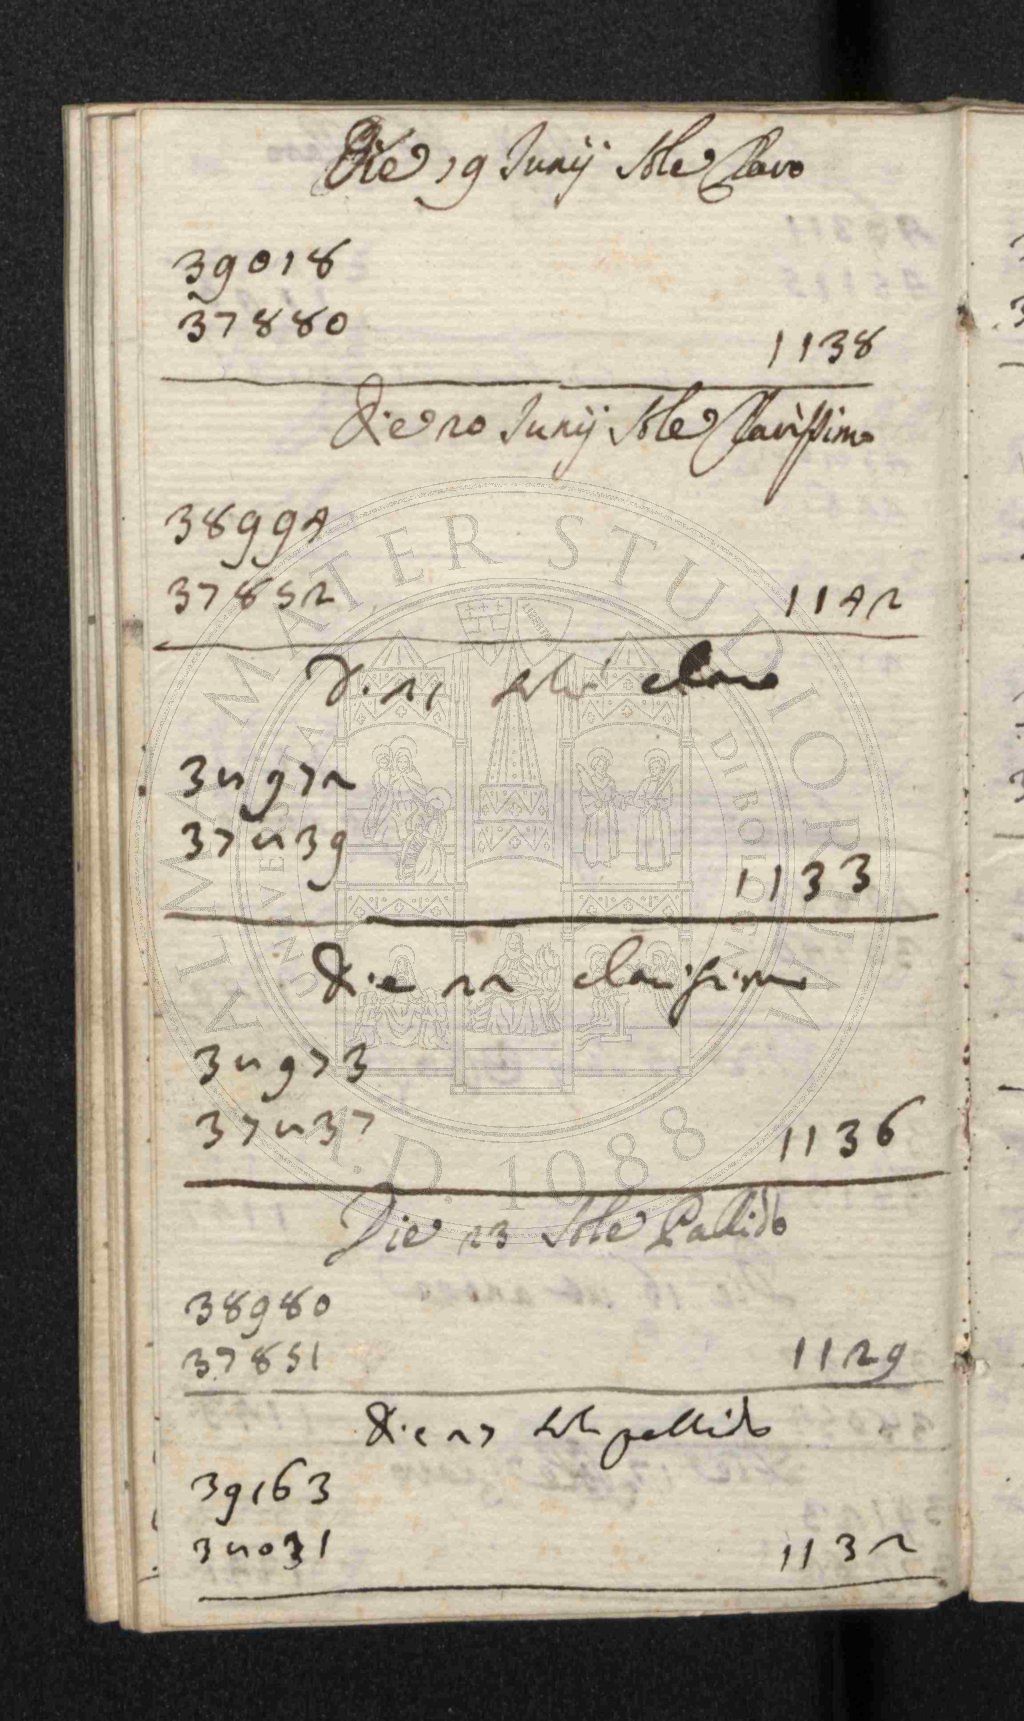 Die 19 Junij Sole Claro
39018
37880
1138
Die 20 Junij Sole Clarissimo
38994
37852
1142
D. 21 sole claro
38972
37839
1133
Die 22 clarissimo
38973
37837
1136
Die 23 Sole Pallido
38980
37851
1129
Die 27 sole pallido
39163
38031
1132
ALMA MATER STUDIORUM
UNIVERSITÀ DI BOLOGNA
A.D. 1088